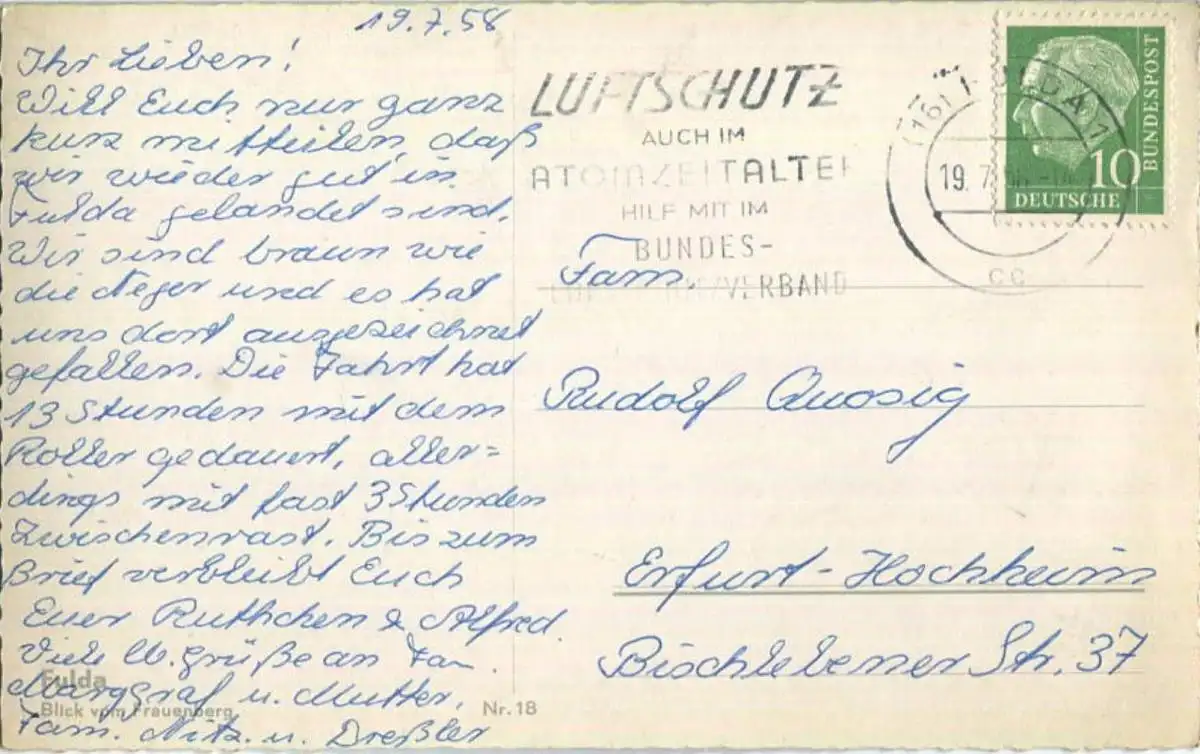 19.7.58
Ihr Lieben!
Will Euch nur ganz
kurz mitteilen, daß
wir wieder gut in
Fulda gelandet sind.
Wir sind braun wie
die Neger und es hat
uns dort ausgezeichnet
gefallen. Die Fahrt hat
13 Stunden mit dem
Roller gedauert, aller=
dings mit fast 3 Stunden
Zwischenrast. Bis zum
Brief verbleibt Euch
Euer Ruthchen & Alfred.
Viele lb. Grüße an Fam
Marggraf u. Mutter,
Fam. Nitz. u. Dreßler
Fulda
Blick vom Frauenberg
Nr. 18
LUFTSCHUTZ
AUCH IM
ATOMZEITALTER
HILF MIT IM
BUNDES-
LUFTSCHUTZVERBAND
(16) FULDA 1
19. 7. 58
cc
10
DEUTSCHE
BUNDESPOST
Fam.
Rudolf Quosig
Erfurt-Hochheim
Bischlebener Str. 37